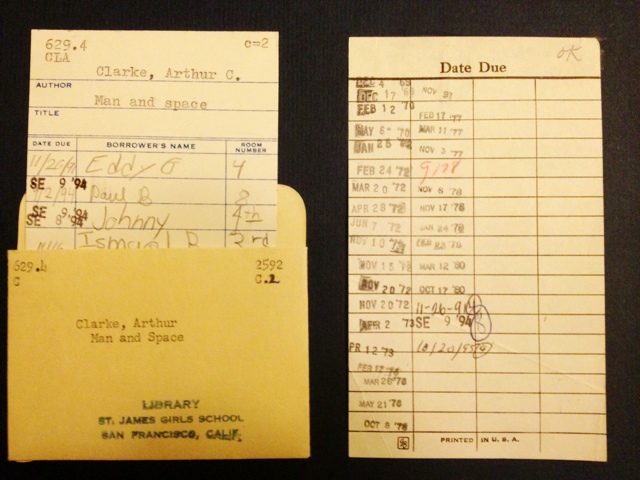 629.4 c=2
CLA
Clarke, Arthur C.
AUTHOR
Man and space
TITLE
DATE DUE BORROWER'S NAME ROOM NUMBER
Eddy G 4
SE 9 '94
Paul B 8
SE 9 '94
SE 8 '94 Johnny 4th
Ismael R 3rd
629.4 2592
C C.2
Clarke, Arthur
Man and Space
LIBRARY
ST. JAMES GIRLS SCHOOL
SAN FRANCISCO, CALIF.
OK
Date Due
DEC 4 69
DEC 17 '69
FEB 12 '70
FEB 17 '77
MAY 6 '70 MAR 31 '77
JAN 25 '72 NOV 3 '77
FEB 24 '72
MAR 20 '72 NOV 8 '78
APR 28 '72 NOV 17 '78
JUN 7 '72 JAN 24 '79
NOV 10 '72
NOV 15 '72 MAR 12 '80
NOV 20 '72 OCT 17 '80
NOV 20 '72
APR 2 '73 SE 9 '94
PR 12 '73
MAY 21 '76
OCT 8 '76
PRINTED IN U. S. A.